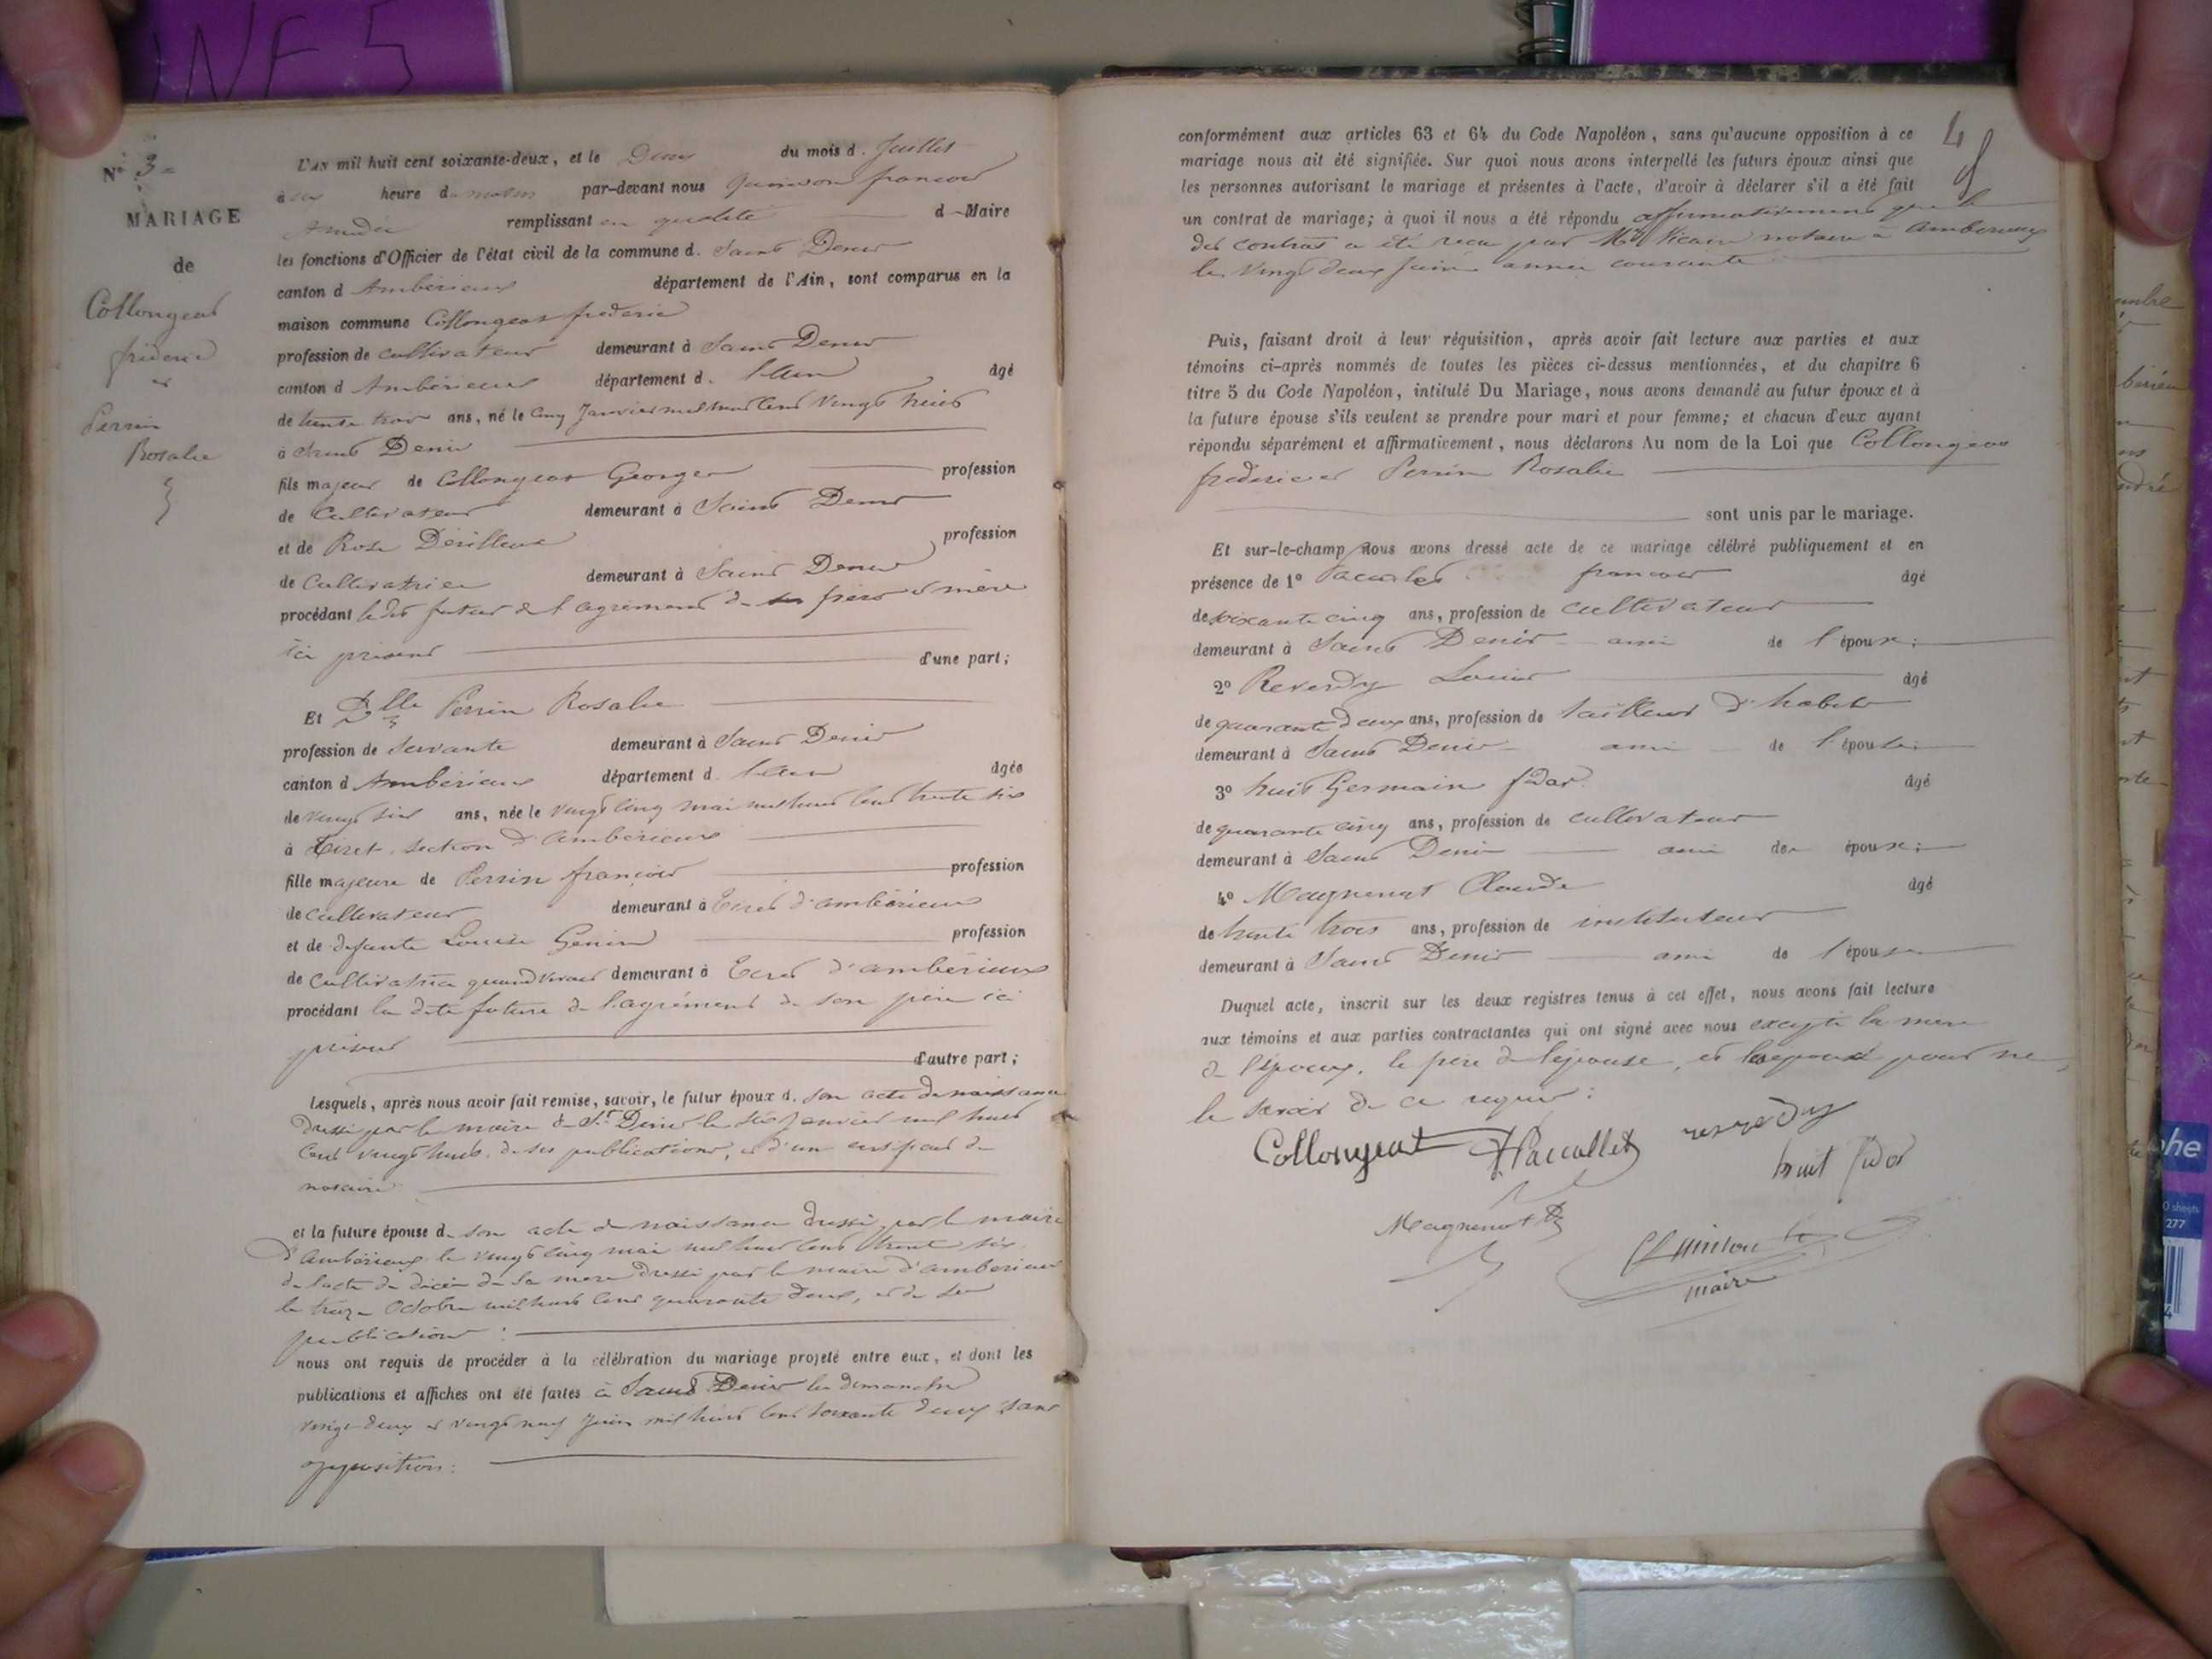 INF 5
N° 3
MARIAGE
de
Collongeat
frédéric
et
Perrin
Rosalie
L'AN mil huit cent soixante-deux, et le Deux du mois d. Juillet
à six heure du matin par-devant nous françois
Amédée remplissant en qualité d Maire
les fonctions d'Officier de l'état civil de la commune d. Saint Denis
canton d Ambérieux département de l'Ain, sont comparus en la
maison commune Collongeat frédéric
profession de cultivateur demeurant à Saint Denis
canton d Ambérieux département d. l'Ain âgé
de trente trois ans, né le cinq Janvier mil huit cent vingt huit
à Saint Denis
fils majeur de Collongeat George profession
de Cultivateur demeurant à Saint Denis
et de Rose profession
de Cultivatrice demeurant à Saint Denis
procédant ledit futur de l'agrément de père et mère
ici présent d'une part;
Et Dlle Perrin Rosalie
profession de Servante demeurant à Saint Denis
canton d Ambérieux département d. l'Ain âgée
de vingt six ans, née le vingt cinq mai mil huit cent trente six
à Tiret section d'ambérieux
fille majeure de Perrin françois profession
de cultivateur demeurant à Tiret d'ambérieux
et de défunte Louise Genin profession
de Cultivatrice quand vivait demeurant à Tiret d'ambérieux
procédant la dite future de l'agrément de son père ici
présent
d'autre part;
Lesquels, après nous avoir fait remise, savoir, le futur époux d. son acte de naissance
dressé par le maire de St Denis le six Janvier mil huit
cent vingt huit, de ses publications, et d'un certificat de
notaire
et la future épouse d. son acte de naissance dressé par le maire
d'Ambérieux le vingt cinq mai mil huit cent trente six
de l'acte de décès de sa mère dressé par le maire d'ambérieux
le treize Octobre mil huit cent quarante deux, et de ses
publications :
nous ont requis de procéder à la célébration du mariage projeté entre eux, et dont les
publications et affiches ont été faites à Saint Denis les dimanches
vingt-deux et vingt neuf Juin mil huit cent soixante deux sans
opposition:
conformément aux articles 63 et 64 du Code Napoléon, sans qu'aucune opposition à ce
mariage nous ait été signifiée. Sur quoi nous avons interpellé les futurs époux ainsi que
les personnes autorisant le mariage et présentes à l'acte, d'avoir à déclarer s'il a été fait
un contrat de mariage; à quoi il nous a été répondu affirmativement que le
dit contrat a été reçu par Me Vicaire notaire à Ambérieux
le vingt deux Juin année courante
Puis, faisant droit à leur réquisition, après avoir fait lecture aux parties et aux
témoins ci-après nommés de toutes les pièces ci-dessus mentionnées, et du chapitre 6
titre 5 du Code Napoléon, intitulé Du Mariage, nous avons demandé au futur époux et à
la future épouse s'ils veulent se prendre pour mari et pour femme; et chacun d'eux ayant
répondu séparément et affirmativement, nous déclarons Au nom de la Loi que Collongeat
frédéric et Perrin Rosalie
sont unis par le mariage.
Et sur-le-champ Nous avons dressé acte de ce mariage célébré publiquement et en
présence de 1° Paccallet françois âgé
de soixante cinq ans, profession de cultivateur
demeurant à Saint Denis ami de l'époux;
2° Reverdy Louis âgé
de quarante deux ans, profession de tailleur d'habits
demeurant à Saint Denis ami de l'épouse;
3° huit Germain fidor âgé
de quarante cinq ans, profession de cultivateur
demeurant à Saint Denis ami de époux;
4° Magnenot Claude âgé
de trente trois ans, profession de instituteur
demeurant à Saint Denis ami de l'épouse
Duquel acte, inscrit sur les deux registres tenus à cet effet, nous avons fait lecture
aux témoins et aux parties contractantes qui ont signé avec nous excepté la mère
de l'époux, le père de l'épouse, et pour ne
le savoir de ce requis:
Collongeat Paccallet reverdy
huit fidor
Magnenot
maire